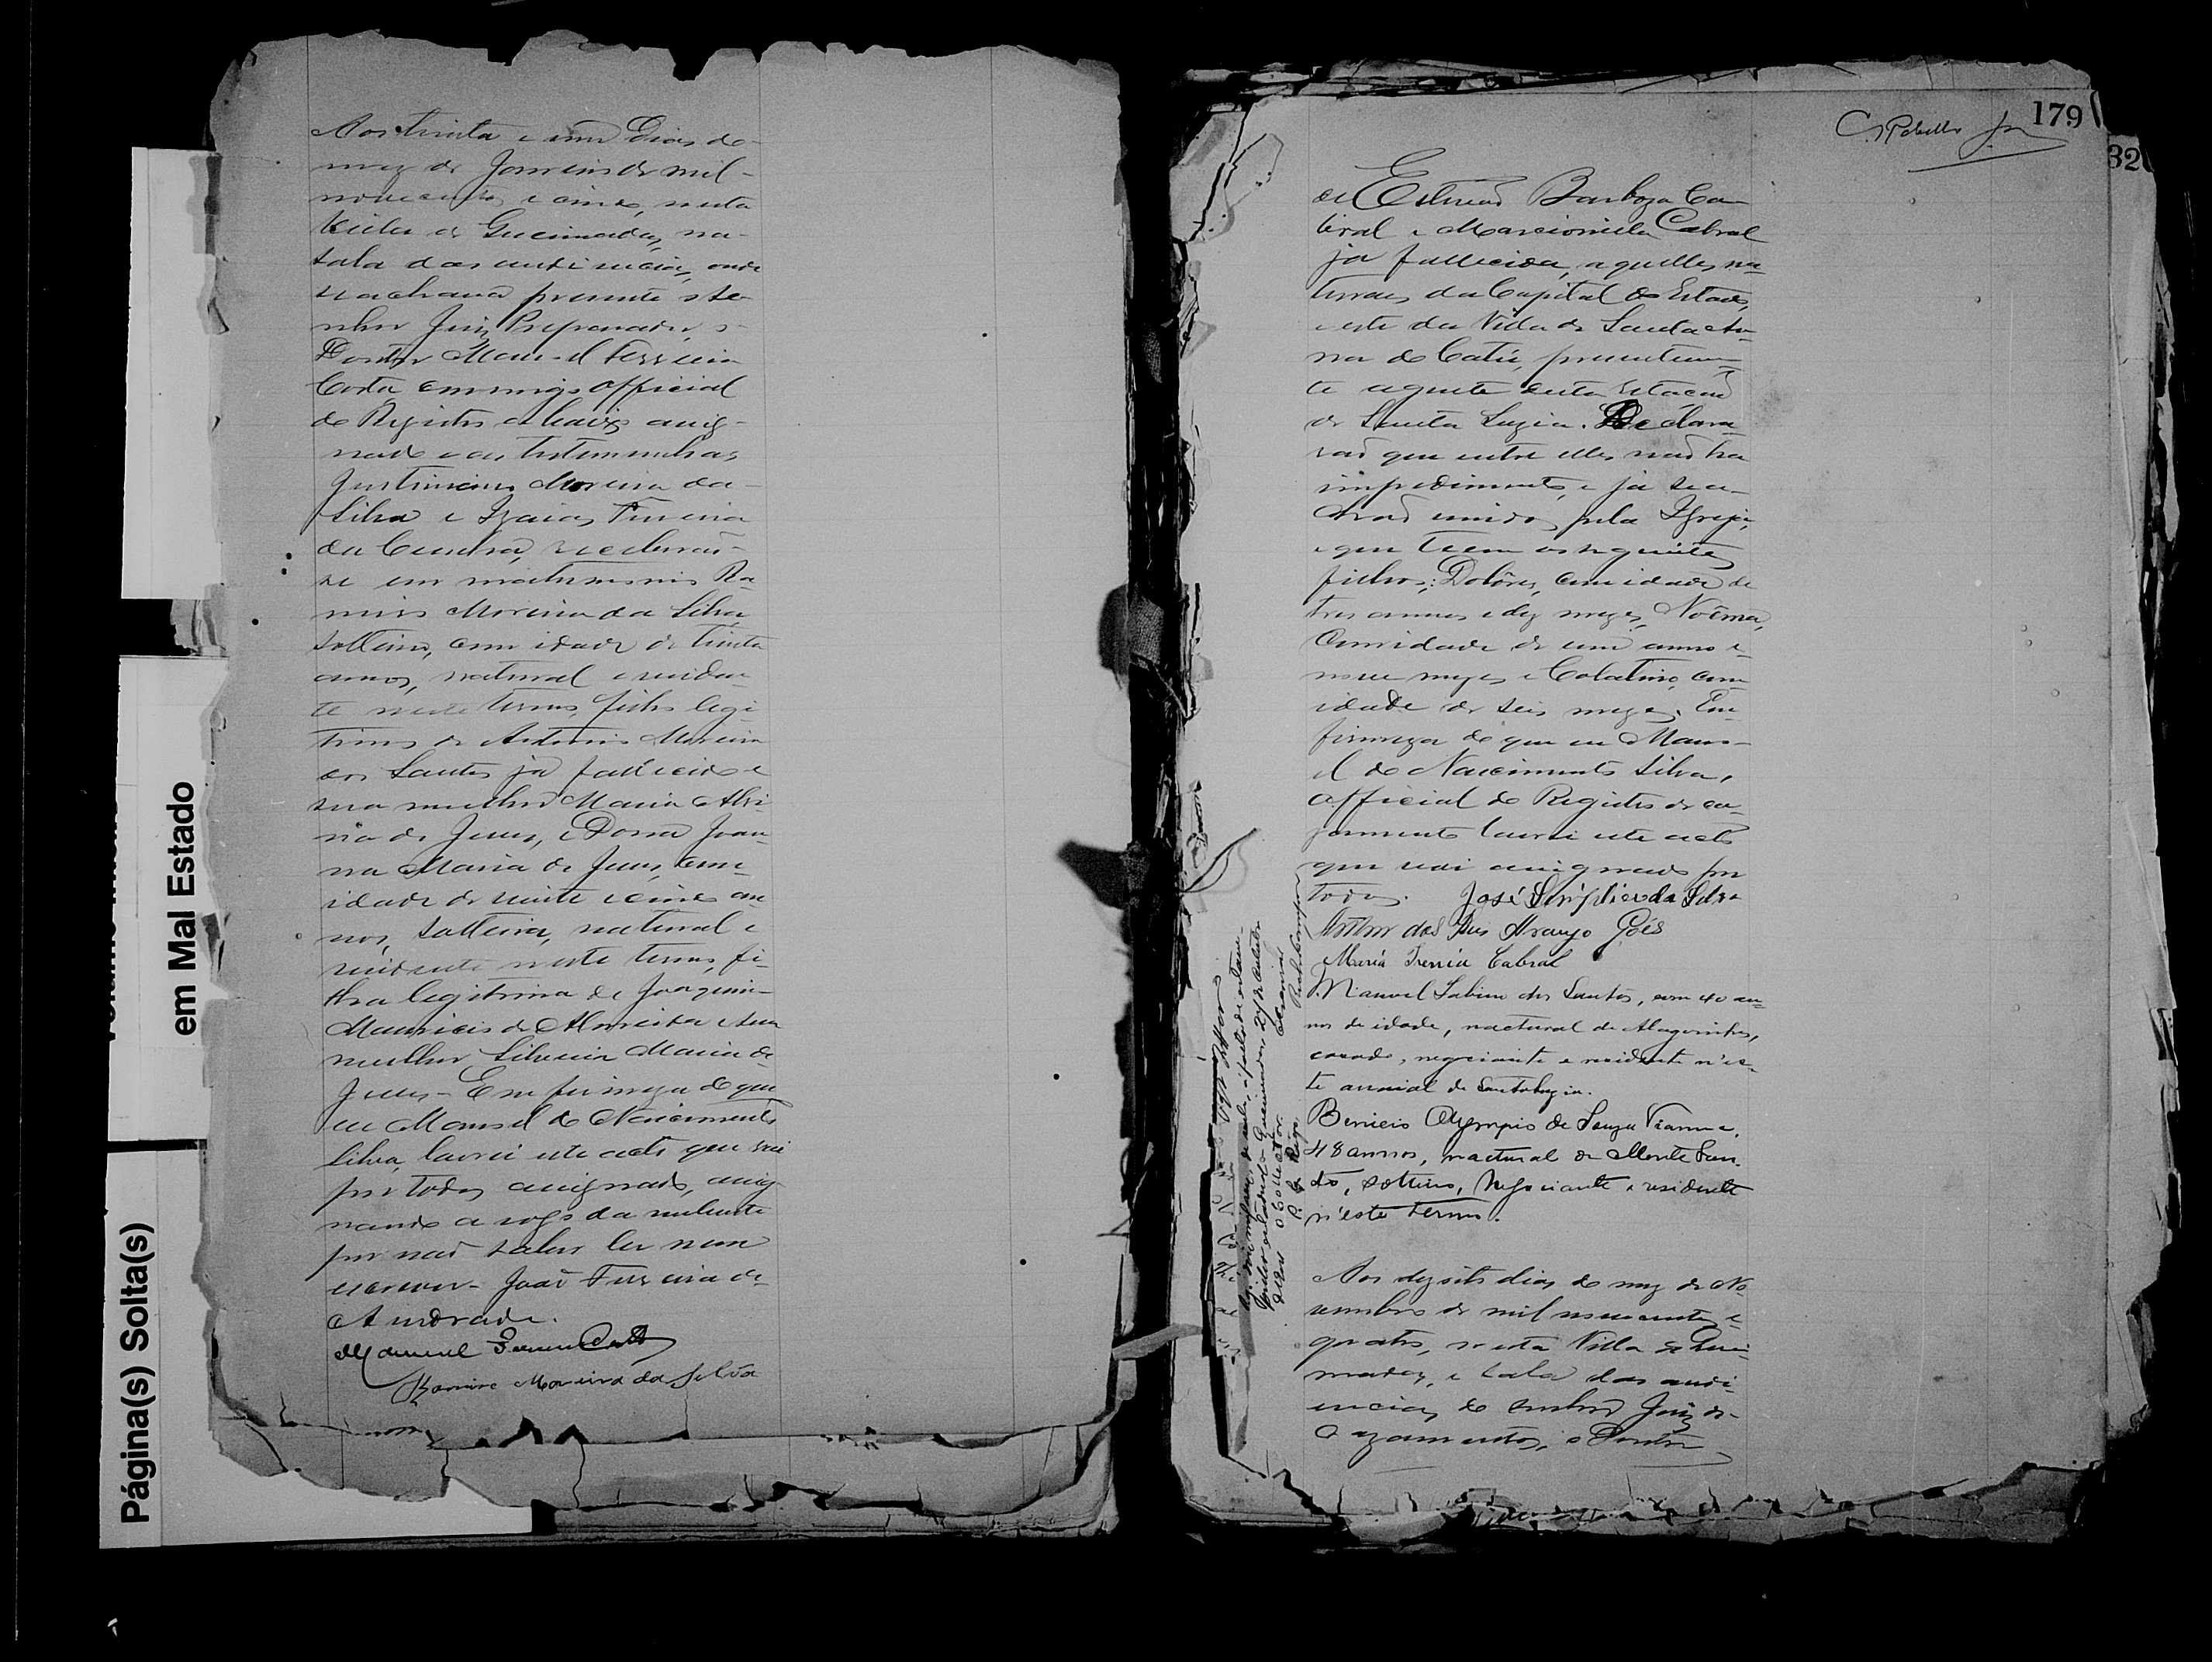 Aos trinta e um dias do
mez de Janeiro de mil
novecentos e cinco, nesta
Villa de Queimadas, na
sala das audiencias, onde
se achava presente o Se-
nhor Juiz Preparador, o
Doutor Manoel Ferreira
Costa commigo Official
do Registro abaixo assig-
nado e as testemunhas
Justiniano Moreira da
Silva e Izaias Ferreira
da Cunha, receberaõ-
se em matrimonio Ra-
miro Moreira da Silva,
solteiro, com idade de trinta
annos, natural e residen-
te neste termo, filho legi-
timo de Antonio Moreira
dos Santos já fallecido e
sua mulher Maria
de Jesus, e Dona Joan-
na Maria de Jesus, com
idade de vinte e cinco an-
nos, solteira, natural e
residente neste termo, fi-
lha legitima de Joaquim
Mauricio de Almeida e sua
mulher Silveria Maria de
Jesus. Em firmeza do que
eu Manoel do Nascimento
Silva, lavrei este acto que vai
por todos assignado, assig-
nando a rogo da nubente
por naõ saber ler nem
escrever João Ferreira de
Andrade.
Manuel Ferreira Costa
Ramiro Moreira da Silva
em Mal Estado
Página(s) Solta(s)
179
32
de Estevaõ Barboza Ca-
bral e Marcionilla Cabral
já fallecida, aquelles na-
turaes da Capital do Estado,
e este da Villa de Santa An-
na do Catú, presentemen-
te aquele desta Estacaõ
de Santa Luzia. Declara-
raõ que entre elles naõ ha
impedimento, e já se a-
chaõ unidos pela Igreja,
e que teem os seguintes
filhos: Dolôres, com idade de
tres annos e dez mezes, Noêma,
com idade de um anno e
nove mezes e Colatino, com
idade de seis mezes. Em
firmeza do que eu Mano-
el do Nascimento Silva,
Official do Registro de ca-
zamento lavrei este acto
que vai assignado por
todos. José Simplicio da Silva
Arthur dos Reis Araujo Góes
Maria Irenia Cabral
Manuel Sabino dos Santos, com 40 an-
nos de idade, nactural de Alagoinhas,
casado, negociante e residente n'es-
te arraial de Santa Luzia.
Benicio Olympio de Souza Vianna,
48 annos, nactural de Monte San-
to, solteiro, Negociante e residente
n'este termo.
Aos dezoito dias do mez de No-
vembro de mil novecentos e
quatro, nesta Villa de Quei-
madas, e sala das audi-
encias do Senhor Juiz de
Cazamentos, o Doutor